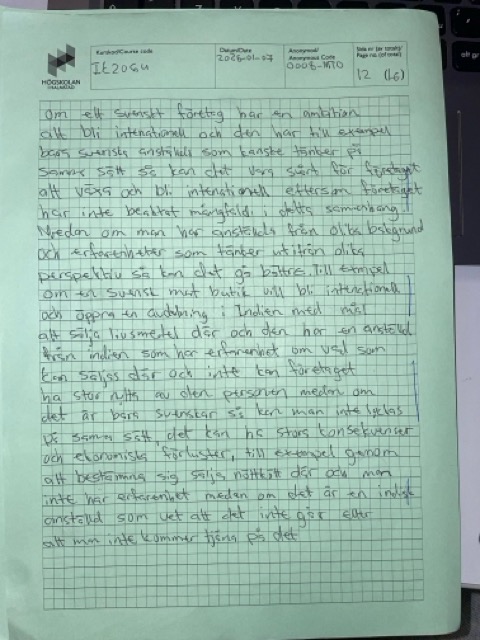 HÖGSKOLAN
I HALMSTAD
Kurskod/Course code
IE2034
Datum/Date
2026-01-07
Anonymkod/
Anonymous Code
0008-1620
Sida nr (av totalt)/
Page no. (of total)
12 (16)
om ett svenskt företag har en ambition
att bli intenationell och den har till exempel
bara svenska anställda som kanste tänker på
samma sätt så kan det vara svårt för företaget
att växa och bli intenationell eftersom företaget
har inte beaktat mångfald i detta samenhang.
Medan om man har anställda från olika bakgrund
och erfarenheter som tänker utifrån olika
perspektiv så kan det gå bättre, till exmpel
om en svensk mat butik vill bli intenationell
och öppna en avdelning i Indien med mål
att sälja livsmedel där och den har en anställd
från indien som har erfarenhet om vad som
kan säljas där och inte kan företaget
ha stor nytta av den personen medan om
det är bara svenskar så kan man inte lyckas
på samma sätt, det kan ha stora konsekvenser
och ekonomiska förluster, till exempel genom
att bestämma sig sälja nötkött där och man
inte har erfarenhet medan om det är en indisk
anställd som vet att det inte går eller
att man inte kommer tjäna på det